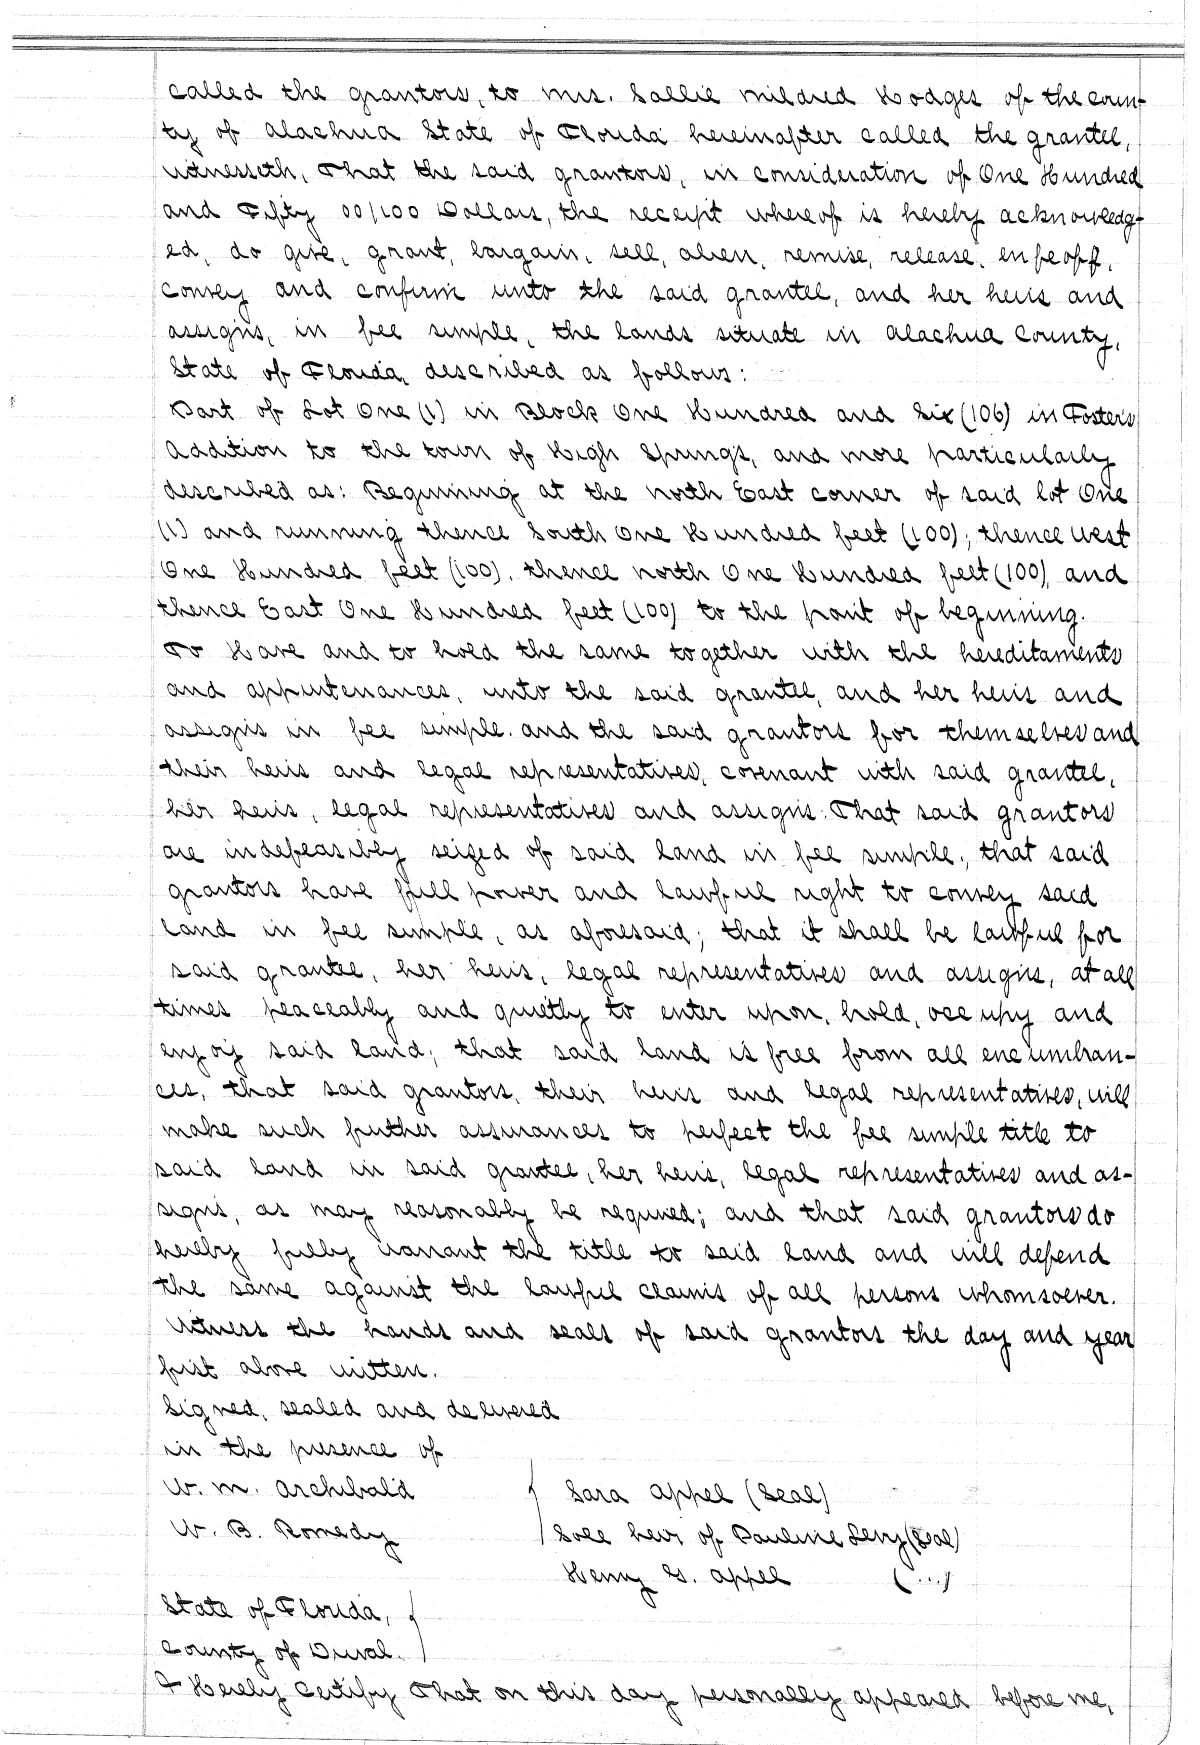 called the grantors, to Mrs. Sallie Mildred Hodges of the coun-
ty of Alachua State of Florida hereinafter called the grantee,
witnesseth, That the said grantors, in consideration of One Hundred
and Fifty 00/100 Dollars, the receipt whereof is hereby acknowledg-
ed, do give, grant, bargain, sell, alien, remise, release, enfeoff,
convey and confirm unto the said grantee, and her heirs and
assigns, in fee simple, the lands situate in Alachua County,
State of Florida, described as follows:
Part of Lot One (1) in Block One Hundred and Six (106) in Foster's
Addition to the town of High Springs, and more particularly
described as: Beginning at the North East corner of said lot One
(1) and running thence South One Hundred feet (100), thence West
One Hundred feet (100), thence North One Hundred feet (100) and
thence East One Hundred feet (100) to the point of beginning.
To Have and to hold the same together with the hereditaments
and appurtenances, unto the said grantee, and her heirs and
assigns in fee simple. And the said grantors for themselves and
their heirs and legal representatives, covenant with said grantee,
her heirs, legal representatives and assigns: That said grantors
are indefeasibly seized of said land in fee simple; that said
grantors have full power and lawful right to convey said
land in fee simple, as aforesaid; that it shall be lawful for
said grantee, her heirs, legal representatives and assigns, at all
times peaceably and quietly to enter upon, hold, occupy and
enjoy said land; that said land is free from all encumbran-
ces, that said grantors, their heirs and legal representatives, will
make such further assurances to perfect the fee simple title to
said land in said grantee, her heirs, legal representatives and as-
signs, as may reasonably be required; and that said grantors do
hereby fully warrant the title to said land and will defend
the same against the lawful claims of all persons whomsoever.
Witness the hands and seals of said grantors the day and year
first above written.
Signed, sealed and delivered
in the presence of
W. M. Archibald Sara Appel (Seal)
W. B. Romedy Sole heir of Pauline Levy (Seal)
Henry G. Appel (....)
State of Florida,
County of Duval.
I Hereby Certify That on this day personally appeared before me,